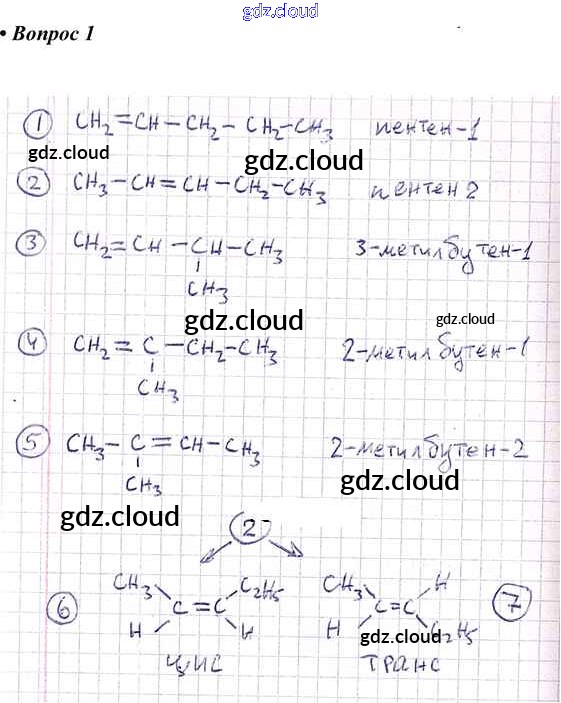 gdz.cloud
• Вопрос 1
① CH₂=CH–CH₂–CH₂–CH₃ пентен-1
gdz.cloud gdz.cloud
② CH₃–CH=CH–CH₂–CH₃ пентен 2
③ CH₂=CH–CH–CH₃ 3-метилбутен-1
CH₃
gdz.cloud gdz.cloud
④ CH₂=C–CH₂–CH₃ 2-метилбутен-1
CH₃
⑤ CH₃–C=CH–CH₃ 2-метилбутен-2
CH₃
gdz.cloud
gdz.cloud
②
CH₃ C₂H₅ CH₃ H
⑥ C=C C=C ⑦
H H H C₂H₅
gdz.cloud
цис транс